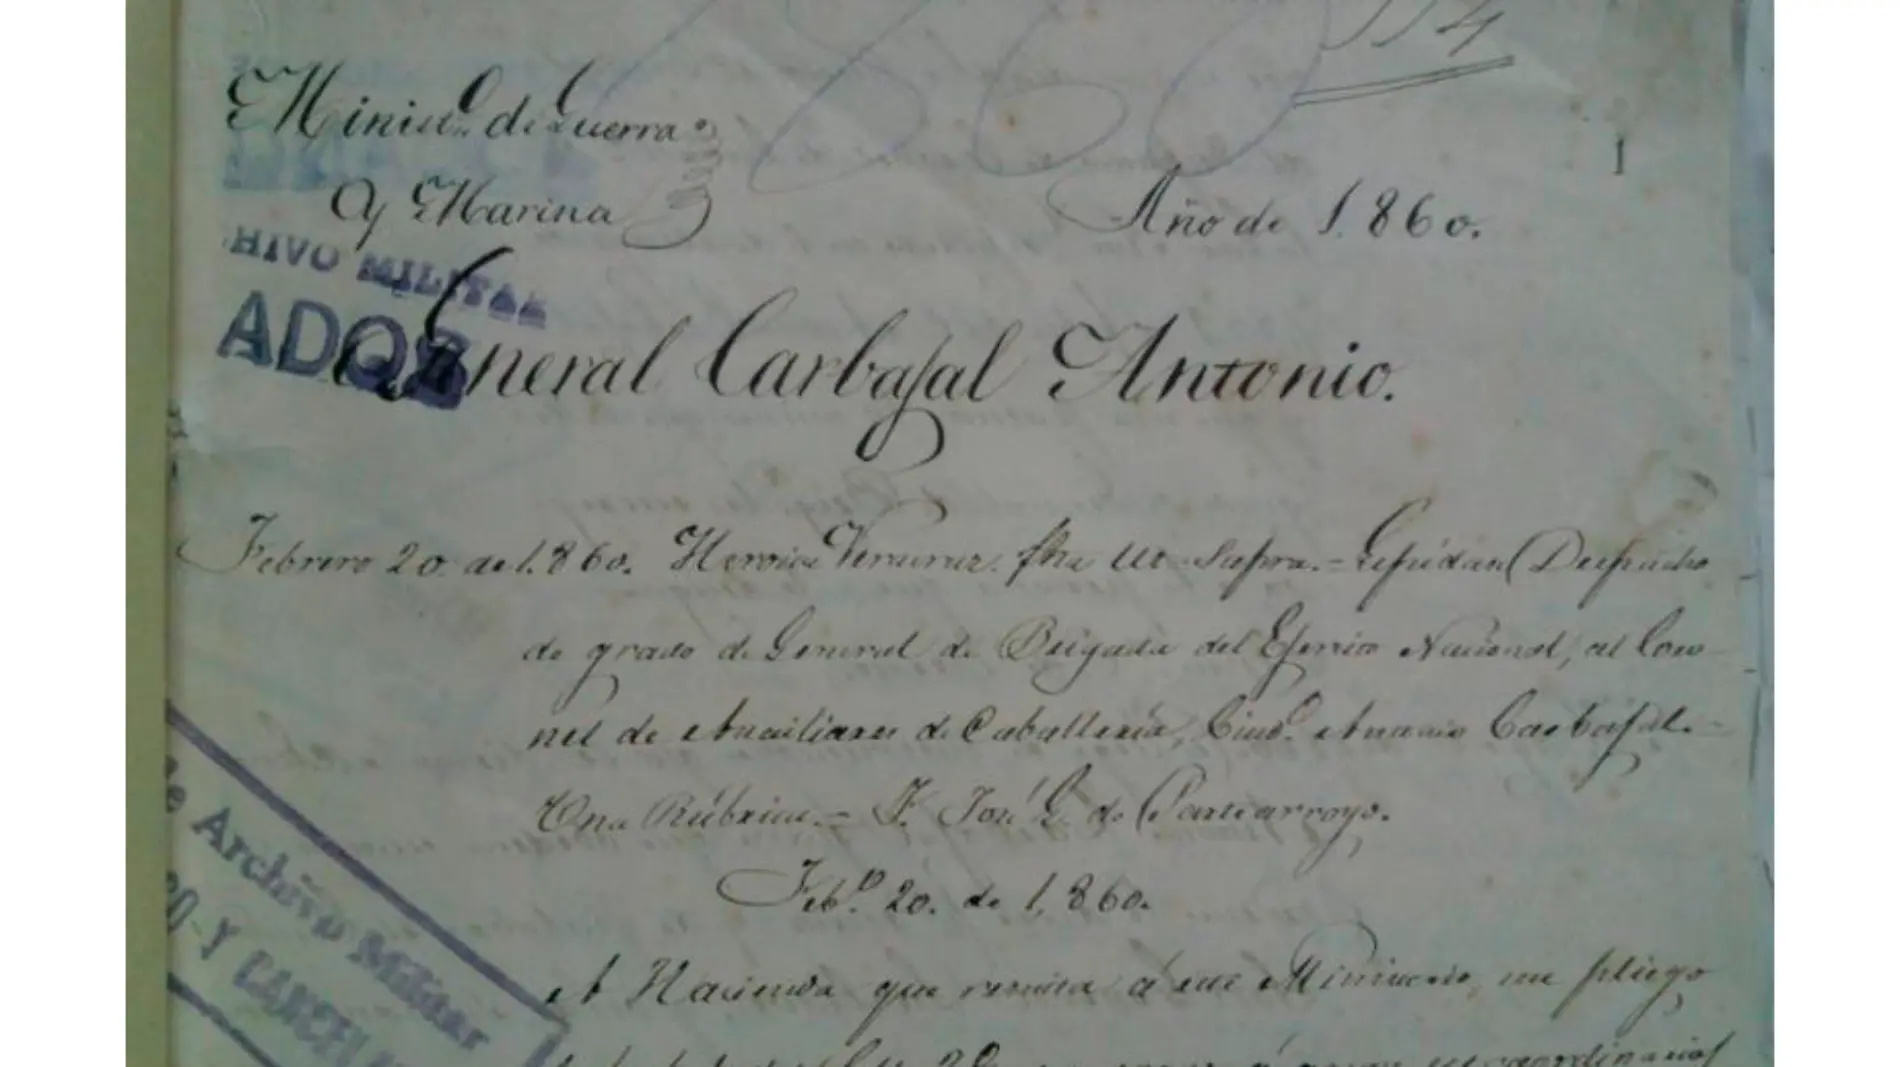 1860
114
Minist.º de Guerra
y Marina
Año de 1.860.
1
HIVO MILITAR
ADO
General Carbajal Antonio.
Febrero 20 de 1.860. Heroica Veracruz. fha ut Supra. = Espídase Despacho
de grado de General de Brigada del Ejército Nacional, al Coro-
nel de Auxiliares de Caballería, Ciud.º Antonio Carbajal. =
Una Rúbrica. = F. José G. de Partearroyo.
Feb.º 20. de 1.860.
A Hacienda que remita á este Ministerio, un pliego
de Archivo Militar
O-Y CANCEL